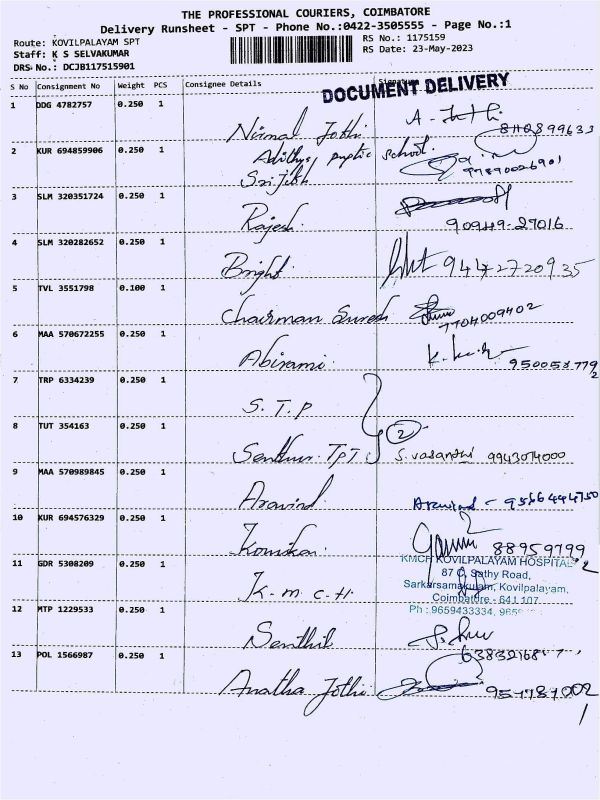 THE PROFESSIONAL COURIERS, COIMBATORE
Delivery Runsheet - SPT - Phone No.:0422-3505555 - Page No.:1
Route: KOVILPALAYAM SPT
RS No.: 1175159
Staff: K S SELVAKUMAR
RS Date: 23-May-2023
DRS No.: DCJB117515901
S No Consignment No Weight PCS Consignee Details Signature
DOCUMENT DELIVERY
1 DDG 4782757 0.250 1
Nirmal Jothi 8110899633
2 KUR 694859906 0.250 1
Adithya public school.
Sri Jith
3 SLM 320351724 0.250 1
Rajesh 90949-27016
4 SLM 320282652 0.250 1
Bright 9442720935
5 TVL 3551798 0.100 1
Chairman Suresh 7704009402
6 MAA 570672255 0.250 1
Abirami
7 TRP 6334239 0.250 1
S.T.P
8 TUT 354163 0.250 1
2
Senthur TPT S.vasanthi 9943074000
9 MAA 570989845 0.250 1
Aravind Aravind - 9566494750
10 KUR 694576329 0.250 1
88959799
2
11 GDR 5308209 0.250 1
KMCH KOVILPALAYAM HOSPITAL
87 Sathy Road,
Sarkarsamakulam, Kovilpalayam,
K.m.c.H.
Coimbatore - 641 107
Ph : 9659433334,
12 MTP 1229533 0.250 1
Senthil
13 POL 1566987 0.250 1
Anatha Jothi